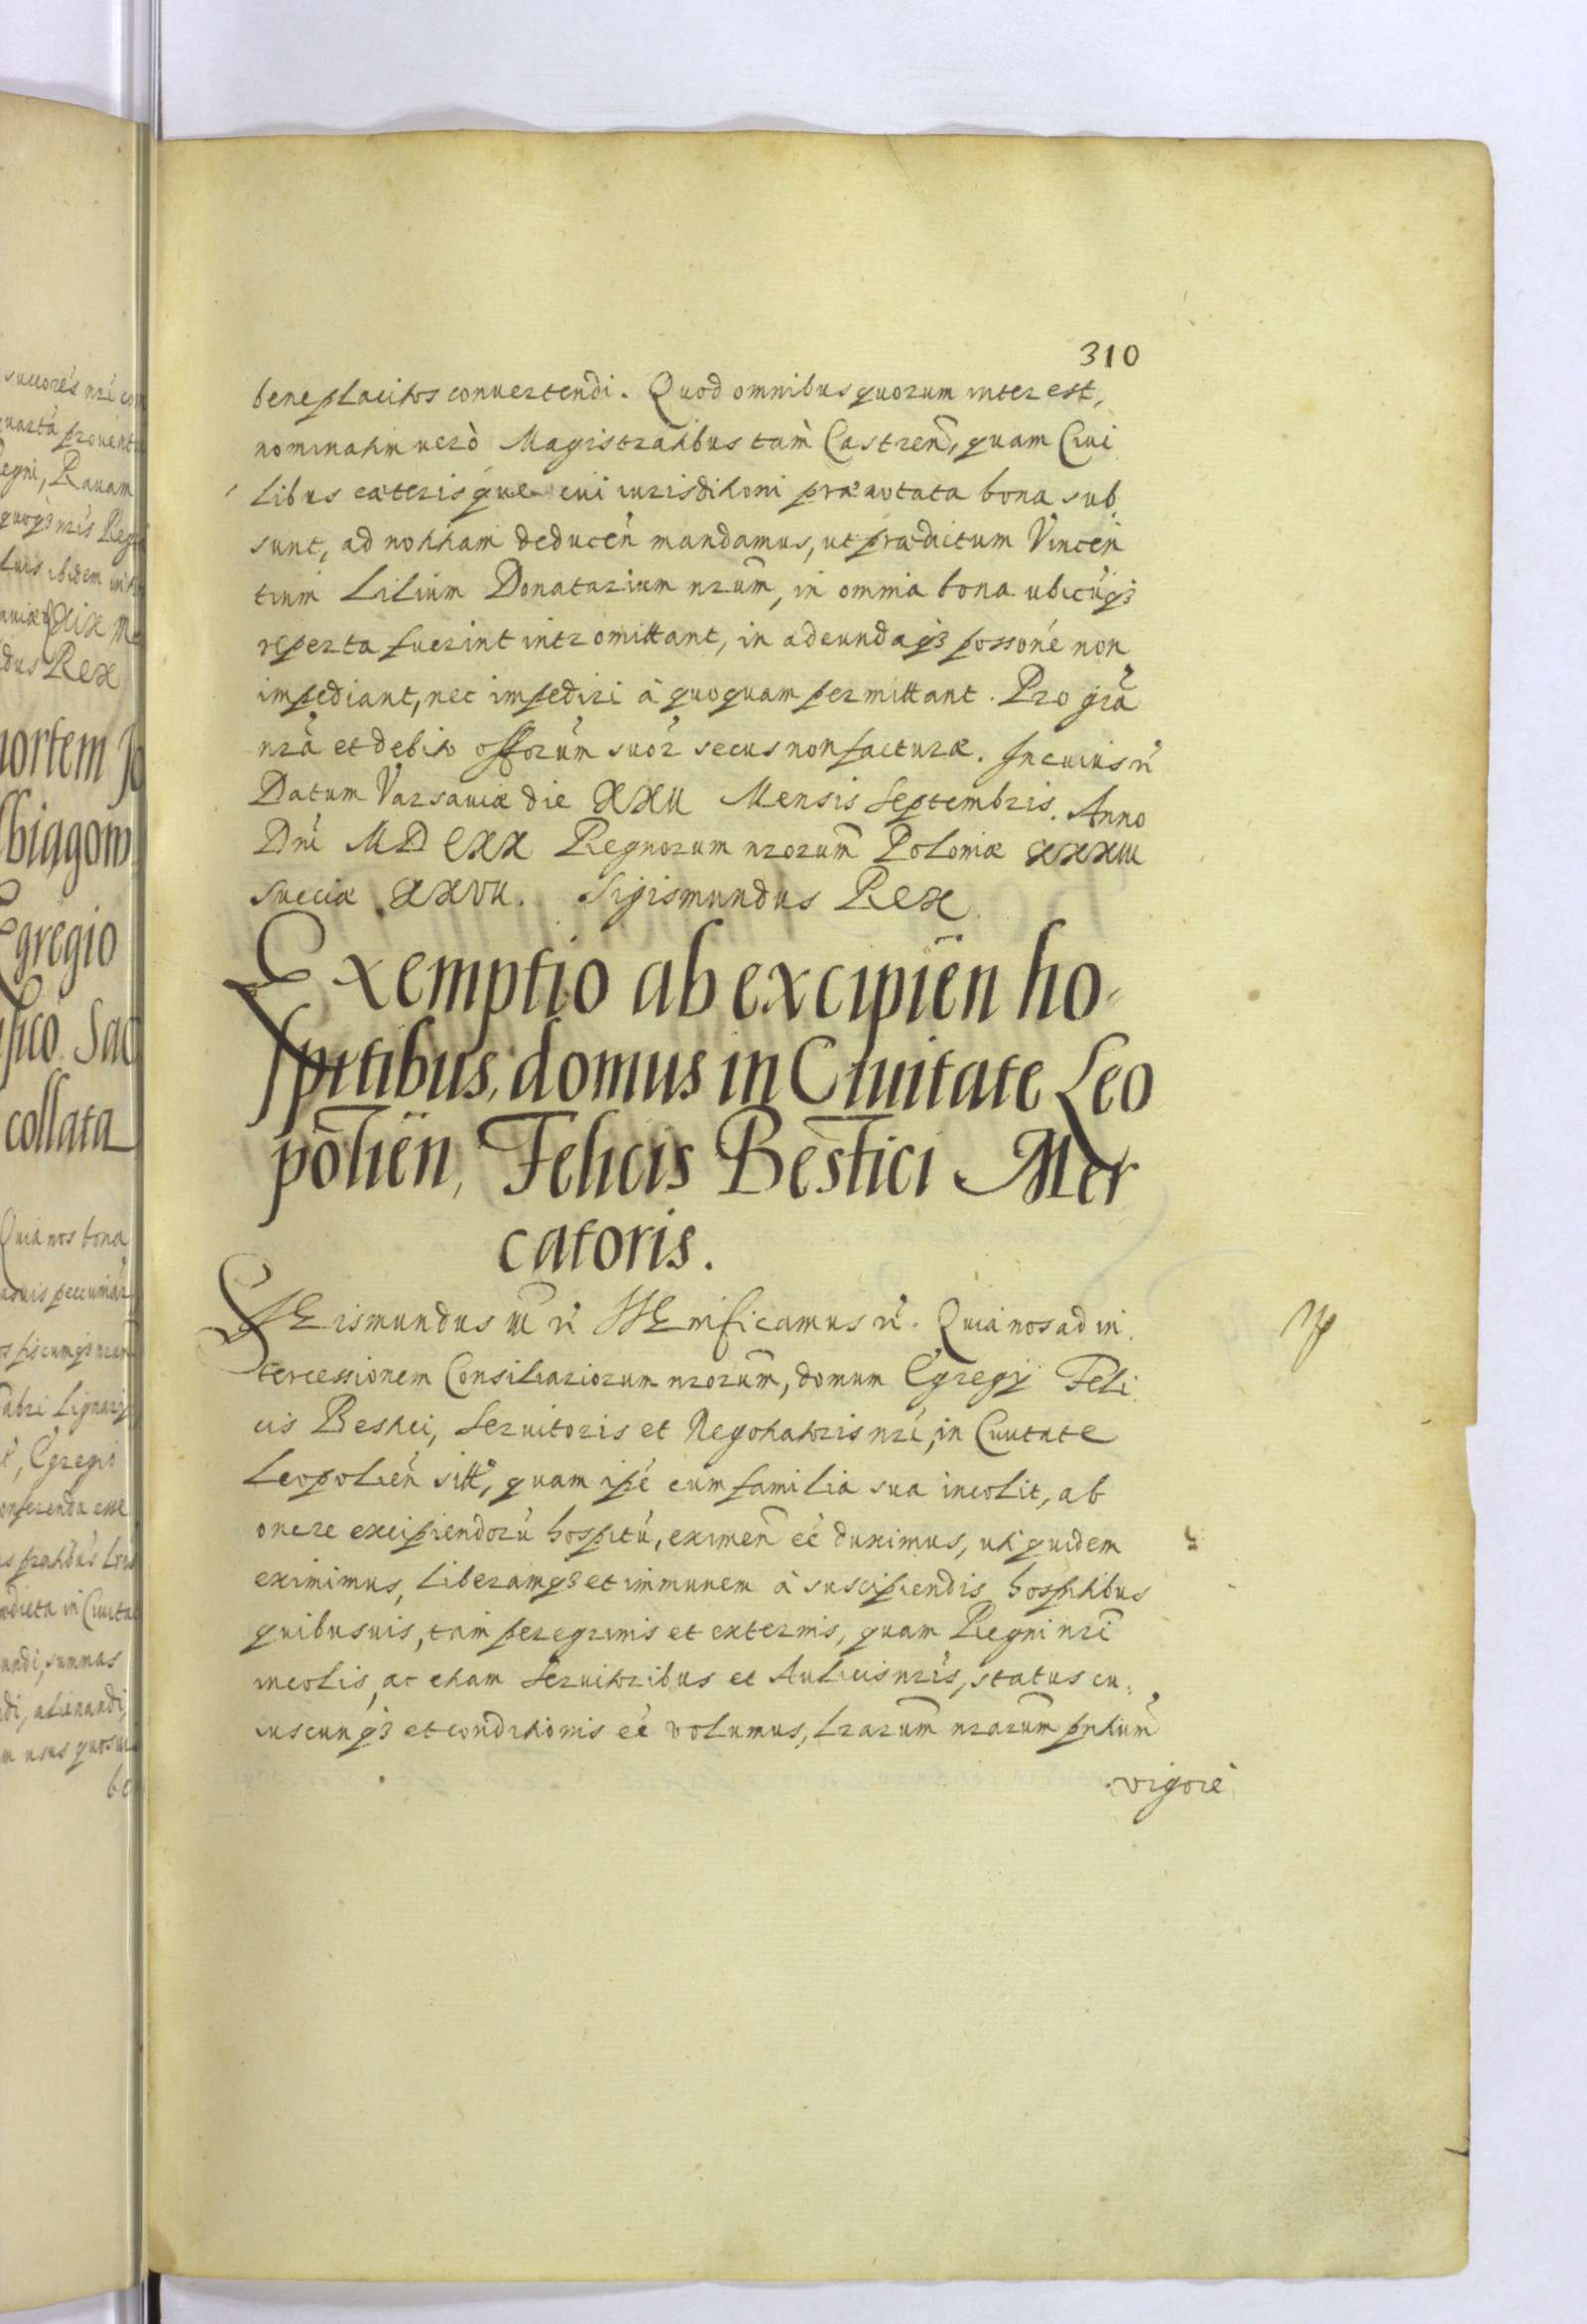 310
beneplacitos convertendi. Quod omnibus quorum interest,
nominatim verò Magistratibus tam Castren, quam Civi
libus cæterisque cui iurisditioni prænotata bona sub
sunt, ad notitiam deducen mandamus, ut prædictum Vincen
tium Lilium Donatarium nrum, in omnia bona ubicuqз
reperta fuerint intromittant, in adeundaqз possone non
impediant, nec impediri à quoquam permittant. Pro gra
nra et debito offorum suor secus non facturæ. In cuius rei
Datum Varsaviæ die XXII Mensis Septembris. Anno
Dni MDCXX Regnorum nrorum Poloniæ XXXIII
Sueciæ XXVII. Sigismundus Rex
Exemptio ab excipien ho-
spitibus, domus in Civitate Leo
polien, Felicis Bestici Mer
catoris.
SIGismundus III rc SIGnificamus rc. Quia nos ad in
tercessionem Consiliariorum nrorum, domum Egregij Feli
cis Bestici, Servitoris et Negotiatoris nri, in Civitate
Leopolien sitt, quam ipe cum familia sua incolit, ab
onere excipiendorū hospitū, eximen eē duximus, uti quidem
eximimus, Liberamqз et immunem à suscipiendis hospitibus
quibusuis, tam peregrinis et externis, quam Regni nri
incolis, ac etiam Servitoribus et Aulicis nris, status cu-
iuscunqз et conditionis eē volumus, lrarum nrarum pntium
vigore
succores nri con
quarta provent
Regni, Ravam
quoqз nris Reg
ibidem
XIX Me
dus Rex
mortem Jo
Egregio
Sac
collata
Quia nos bona
Fabri Lignarij
Egregio
conferenda esse
in Civita
undi, summas
di, alienandi,
usus quosui
be